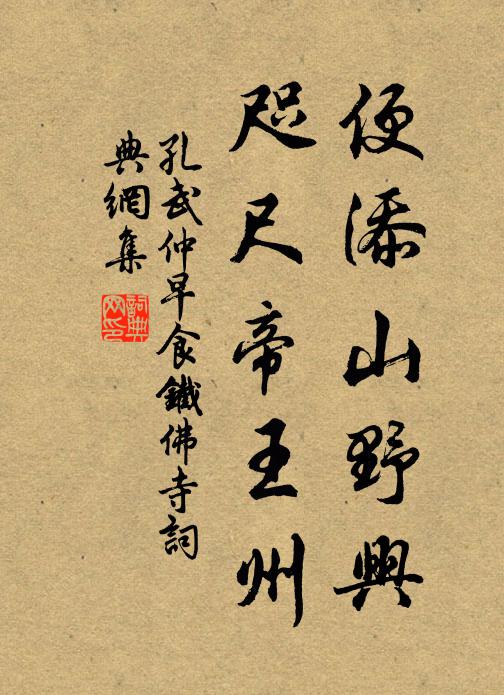 便添山野興
咫尺帝王州
孔武仲早食鐵佛寺詞
典網集
詞典網印